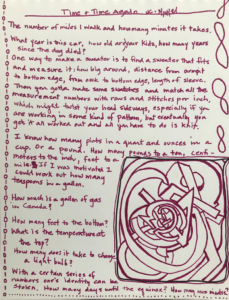 Time + Time Again
The number of miles I walk and how many minutes it takes.
What year is this car, how old are your kids, how many years
since the dog died?
One way to make a sweater is to find a sweater that fits
and measure it: how big around, distance from armpit
to bottom edge, from neck to bottom edge, length of sleeve.
Then you gotta make some swatches and match all the
measurements with rows and stitches per inch,
which might twist your head sideways, especially if you
are working in some kind of pattern, but eventually you
get it all worked out and all you have to do is knit.
I know how many pints in a quart and ounces in a
cup. Or a pound. How many pounds to a ton, centi-
meters to the inch, feet to a
mile. If I was motivated I
could work out how many
teaspoons in a gallon.
How much is a gallon of gas
in Canada?
How many feet to the bottom?
What is the temperature at
the top?
How many does it take to change
a light bulb?
With a certain series of
numbers one's identity can be
stolen. How many days until the equinox? How many minutes?